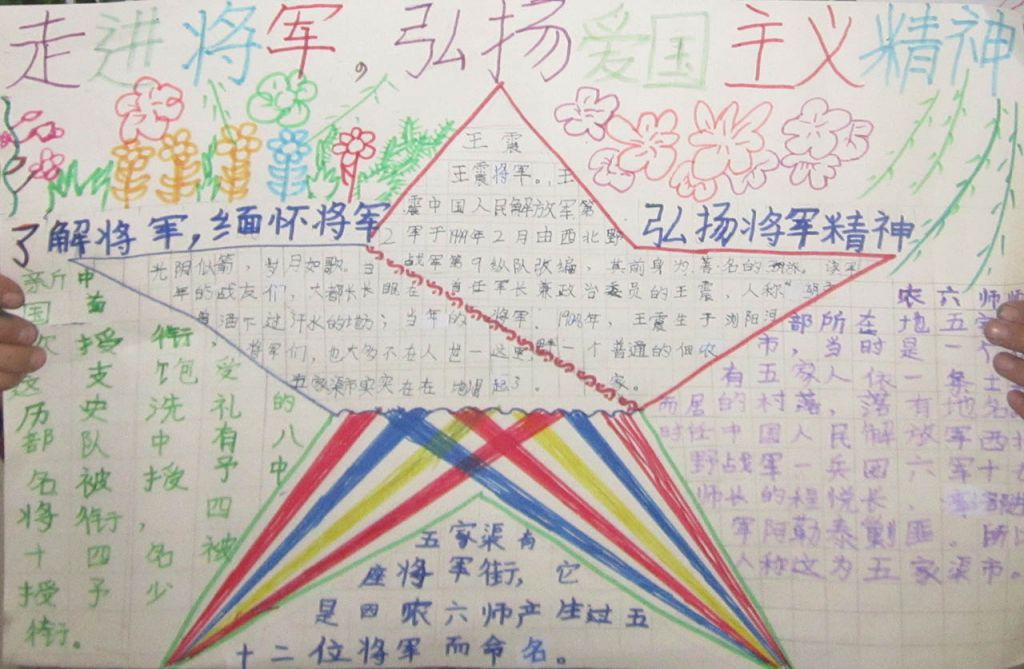 走进将军,弘扬爱国主义精神
了解将军,缅怀将军
弘扬将军精神
王震
王震将军。王
震中国人民解放军第
2军于1949年2月由西北野
战军第9纵队改编,其前身为著名的
首任军长兼政治委员的王震,人称"
将军。1908年,王震生于浏阳河
一个普通的佃农
家。
光阴似箭,岁月如歌。当
年的战友们,大都长眠在
曾洒下过汗水的地方;当年的
将军们,也大多不在人世
五家渠市实实在在地崛起了。
中
国
次授衔,
这支饱受
历史洗礼的
部队中有八
名被授予中
将衔,四
十四名被
授予少
衔。
农六师师
部所在地五家
市,当时是一个
有五家人依一条土
而居的村落,落有地名
时任中国人民解放军西北
野战军一兵团六军十七
师长的程悦长,率部
军阿勒泰剿匪。所以
人称这为五家渠市。
五家渠有
座将军街,它
是因农六师产生过五
十二位将军而命名。